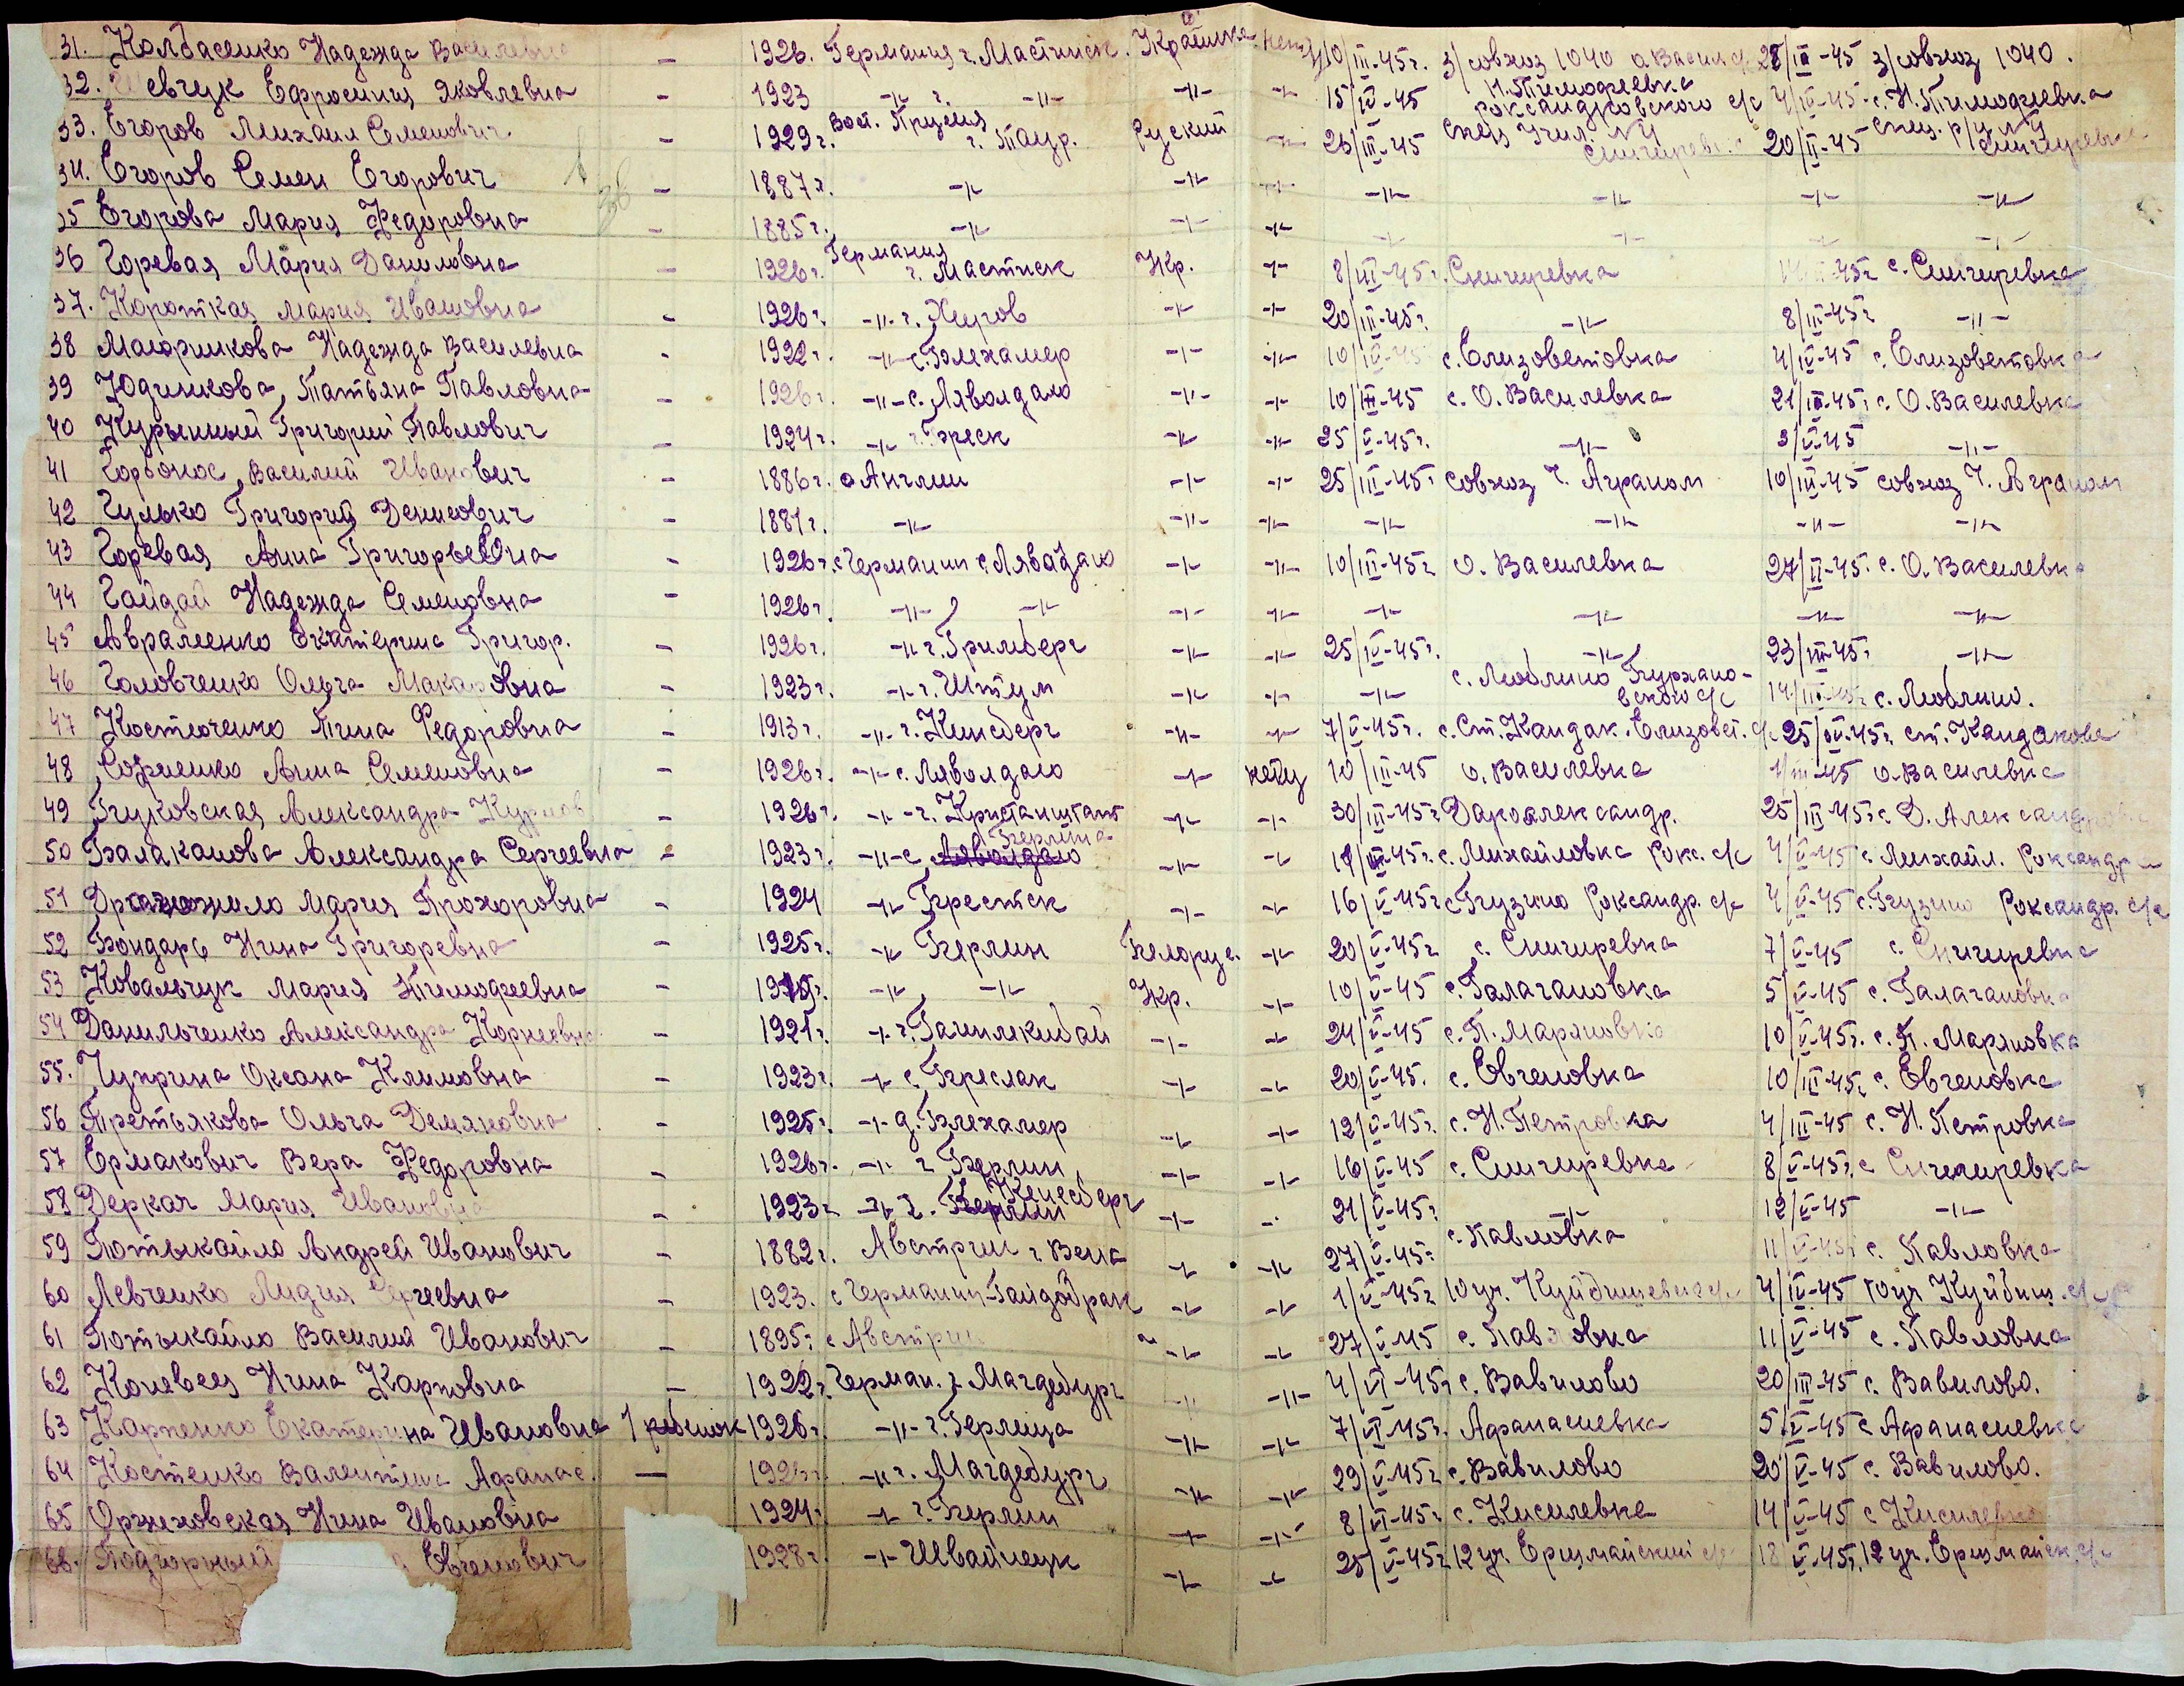 31. Колбасенко Надежда Василевна - 1926. Германия г. Мастиниск. Украинка нет 10/III-45г. з/совхоз 1040 о Васил с/с 28/III-45 з/совхоз 1040.
32. Шевчук Ефросиния Яковлевна - 1923 -"- г. -"- -"- -"- 15/IV-45 Н. Тимофеевка Роксандровского с/с 4/IV-45 с. Н. Тимофеевка
33. Егоров Михаил Семенович - 1929г. Вост. Пруссия г. Таур. Руский -"- 26/III-45 Снигиревк 20/II-45 Снигирев
34. Егоров Семен Егорович - 1887г. -"- -"- -"- -"- -"- -"- -"-
35 Егорова Мария Федоровна - 1885г. -"- -"- -"- -"- -"- -"- -"-
36 Горевая Мария Даниловна - 1926г. Германия г. Мастиск Укр. -"- 8/III-45г. Снигиревка 45г с. Снигиревка
37. Короткая Мария Ивановна - 1926г. -"- г. Хиров -"- -"- 20/III-45г. -"- 8/III-45г -"-
38 Маюрникова Надежда Василевна - 1922г. -"- с. Блехамер -"- -"- 10/IV-45 с. Елизоветовка 4/IV-45 с. Елизоветовка
39 Юдинкова, Татьяна Павловна - 1926г. -"- с. Ляволдаю -"- -"- 10/III-45 с. О. Василевка 21/III-45г с. О. Василевка
40 Курынный Григорий Павлович - 1924г. -"- г. Бреск -"- -"- 25/V-45г. -"- 3/V-45 -"-
41 Горбонос Василий Иванович - 1886г. Англии -"- -"- 25/III-45г совхоз Ч. Аграном 10/III-45 совхоз Ч. Аграном
42 Гулько Григорий Денисович - 1881г. -"- -"- -"- -"- -"- -"- -"-
43 Горевая Анна Григорьевна - 1926г. с Германии с. Лявадаю -"- -"- 10/III-45г О. Василевка 27/II-45г. с. О. Василевка
44 Гайдай Надежда Семеновна - 1926г. -"- -"- -"- -"- -"- -"- -"- -"-
45 Авраменко Екатерина Григор. - 1926г. -"- г. Гримберг -"- -"- 25/IV-45г. -"- 23/III-45г -"-
46 Головченко Ольга Макаровна - 1923г. -"- г. Штум -"- -"- -"- с. Люблино Бурхановского с/с 14/III-45г с. Люблино.
47 Костюченко Тина Федоровна - 1913г. -"- г. Кинсберг -"- -"- 7/V-45г. с. Ст. Кандак. Елизовет. с/с 25/IV-45г. ст. Кандакова
48 Софиенко Анна Семеновна - 1926г. -"- с. Ляволдаю -"- нету 10/III-45 О. Василевка 1/III-45 О. Василевка
49 Бучковская Александра - 1926г. -"- г. Кристанштант -"- -"- 30/III-45г Дакоалександр. 25/III-45г. с. Д. Александровка
50 Балаканова Александра Сергеевна - 1923г. -"- с. Ляволдаю Берлина -"- -"- 19/III-45г. с. Михайловка Рокс. с/с 4/V-45 с. Михайл. Роксандр
51 Дражжило Мария Прохоровна - 1924 -"- Брестск -"- -"- 16/V-45г с Бузино Роксандр. с/с 4/V-45 с. Бузино Роксандр. с/с
52 Бондарь Нина Григоревна - 1925г. -"- Берлин Белорус. -"- 20/V-45г с. Снигиревка 7/V-45 с. Снигиревка
53 Ковальчук Мария Тимофеевна - -"- -"- Укр. -"- 10/V-45 с. Галагановка 5/V-45 с. Галагановка
54 Данильченко Александра Корнеевна - 1921г. -"- г. -"- -"- 24/V-45 с. П. Маряновка 10/V-45г. с. П. Маряновка
55. Чуприна Оксана Климовна - 1923г. -"- с. Бреслак -"- -"- 20/V-45. с. Евгеновка 10/III-45г с. Евгеновка
56 Третьякова Ольга Демяновна - 1925г. -"- д. Блехамер -"- -"- 12/V-45г. с. Н. Петровка 4/III-45 с. Н. Петровка
57 Ермакович Вера Федоровна - 1926г. -"- г. Берлин -"- -"- 16/V-45 с. Снигиревка 8/V-45г. с Снигиревка
58 Деркач Мария Ивановна - 1923г -"- г. Берлин Кенесберг -"- -"- 21/V-45г. -"- 12/V-45 -"-
59 Потыкайло Андрей Иванович - 1882г. Австрии г Вена -"- -"- 27/V-45г. с. Павловка 11/V-45г с. Павловка
60 Левченко Лидия Сергеевна - 1923. с Германии Гандобрак -"- -"- 1/V-45г 10 уч. Куйбишевск с/с 4/IV-45 10 уч Куйбиш. с/с
61 Потыкайло Василий Иванович - 1895г с Австрии -"- -"- 27/V-45 с. Павловка 11/V-45 с. Павловка
62 Коневец Нина Карповна - 1922г. Герман. г. Магдебург -"- -"- 4/VI-45г с. Вавилово 20/III-45 с. Вавилово.
63 Карпенко Екатерина Ивановна 1 ребенок 1926г. -"- г. Герлица -"- -"- 7/VI-45г. Афанасиевка 5/V-45 с Афанасиевка
64 Костенко Валентина Афанас. - 1926г. -"- г. Магдебург -"- -"- 29/V-45г с. Вавилово 20/V-45 с. Вавилово.
65 Оржеховская Нина Ивановна 1924г -"- г. Берлин -"- -"- 8/VI-45г с. Киселевка 14/V-45 с Киселевка
66. Подгорный Евгенович 1928г. -"- Швайнеук -"- -"- 25/V-45г 12 уч. Ерумайский с/с 18/V-45г. 12 уч. Ерумайск. с/с